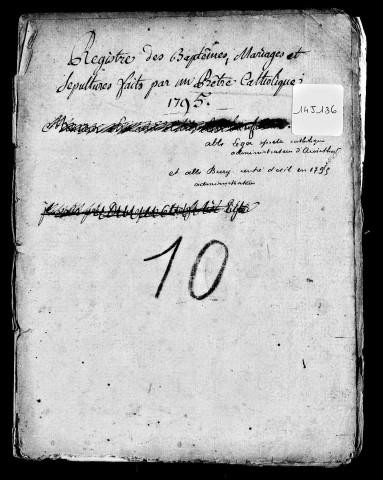 Registre des Baptêmes, Mariages et
Sepultures faits par un Prêtre Catholique;
1795.
14 J 136
abbé apôtre catholique
administrateur d'
et abbé Buny, rentré d'exil en 1795
administrateur
10